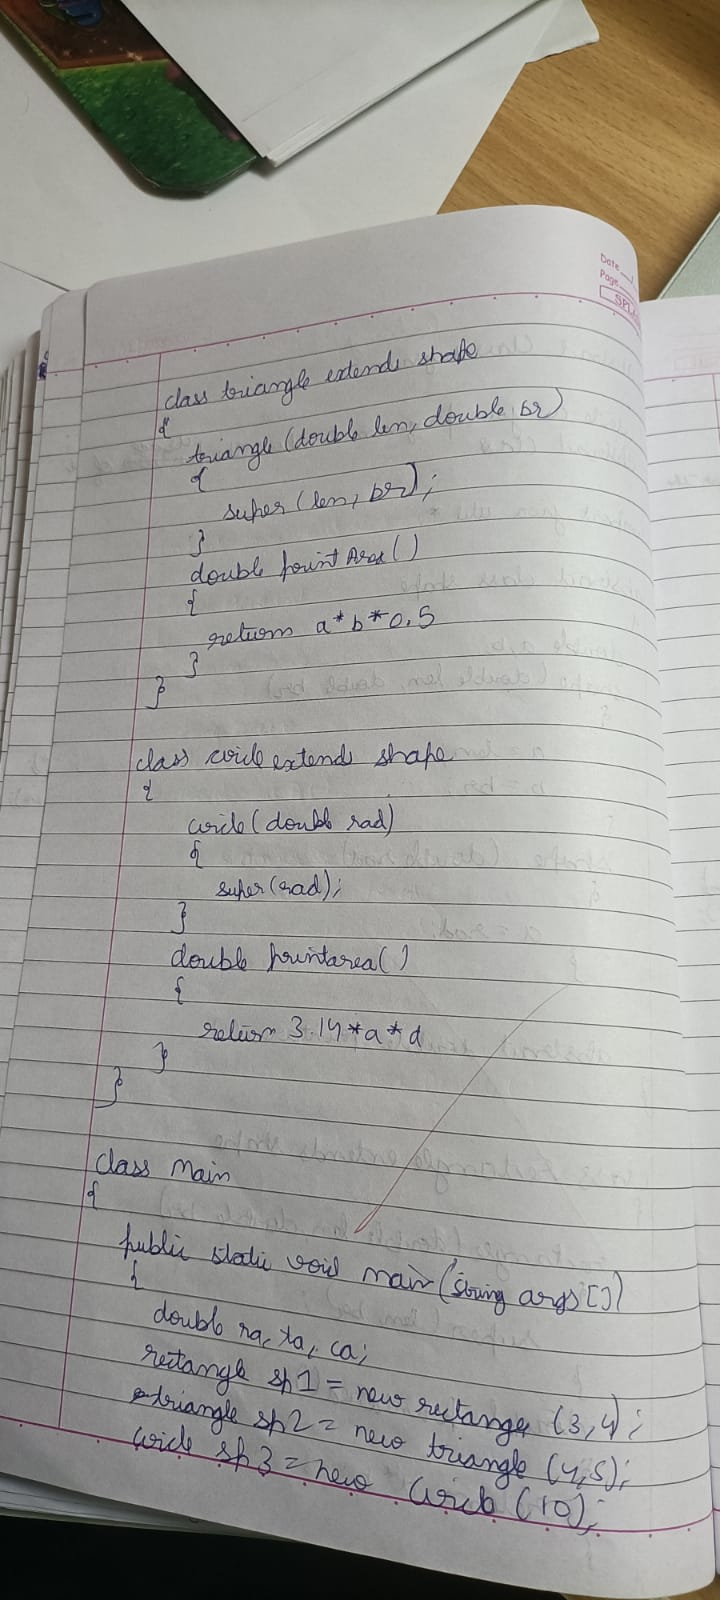 Date
Page
SPL
class triangle extends shape
{
triangle (double len, double br)
{
super (len, br);
}
double print Area ()
{
return a*b*0.5
}
}
class circle extend shape
{
circle (double rad)
{
super (rad);
}
double printarea ()
{
return 3.14*a*d
}
}
class Main
{
public static void main (String args [])
{
double ra, ta, ca;
rectangle sp1 = new rectange (3,4);
triangle sp2 = new triangle (4,5);
circle sp3 = new circle (10);